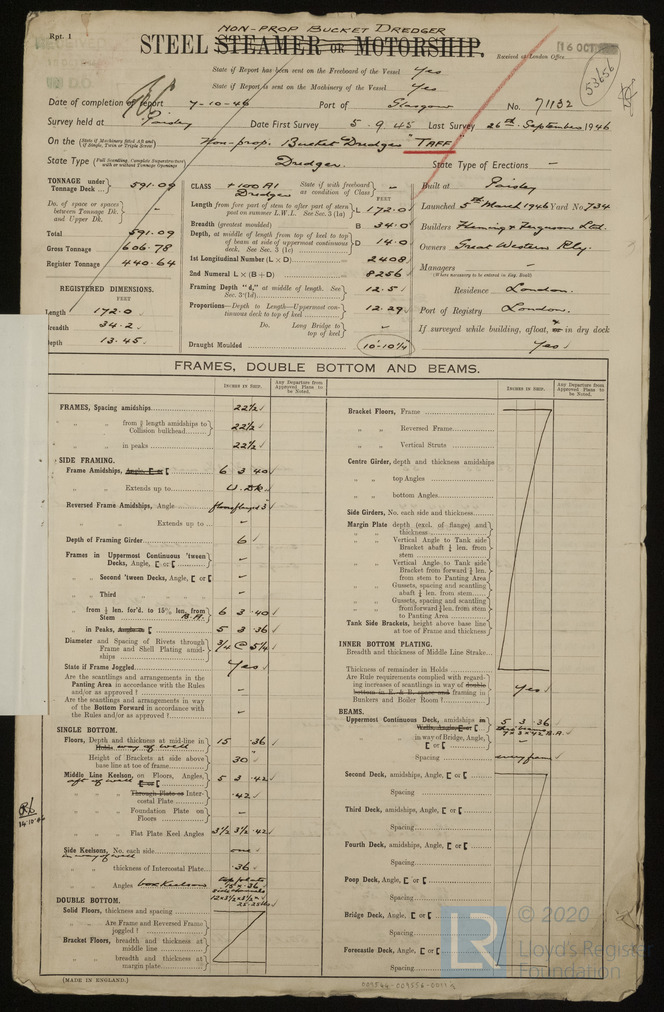 Rpt. 1
NON-PROP BUCKET DREDGER
STEEL STEAMER OR MOTORSHIP.
16 OCT
Received at London Office
53656
State if Report has been sent on the Freeboard of the Vessel Yes
State if Report is sent on the Machinery of the Vessel Yes
Date of completion of report 7-10-46 Port of Glasgow No. 71132
Survey held at Paisley Date First Survey 5.9.45 Last Survey 26th September 1946
On the (State if Machinery fitted Aft and if Single, Twin or Triple Screw) Non-prop. Bucket Dredger "TAFF"
State Type (Full Scantling, Complete Superstructure with or without Tonnage Openings) Dredger. State Type of Erections —
TONNAGE under Tonnage Deck ... 591.09
Do. of space or spaces between Tonnage Dk. and Upper Dk. —
Total 591.09
Gross Tonnage 606.78
Register Tonnage 440.64
REGISTERED DIMENSIONS.
FEET
Length 172.0
Breadth 34.2
Depth 13.45
CLASS +100A1 Dredger State if with freeboard as condition of Class —
FEET
Length from fore part of stem to after part of stern post on summer L.W.L. See Sec. 3 (1a) L 172.0
Breadth (greatest moulded) B 34.0
Depth, at middle of length from top of keel to top of beam at side of uppermost continuous deck. See Sec. 3 (1c) D 14.0
1st Longitudinal Number (L × D) 2408
2nd Numeral L × (B + D) 8256
Framing Depth "d," at middle of length. See Sec. 3 (1d) 12.5
Proportions—Depth to Length—Uppermost continuous deck to top of keel 12.29
Do. Long Bridge to top of keel —
Draught Moulded 10'-10¼
Built at Paisley
Launched 5th March 1946 Yard No 734
Builders Fleming & Ferguson Ltd.
Owners Great Western Rly.
Managers —
(Where necessary to be entered in Reg. Book)
Residence London.
Port of Registry London.
If surveyed while building, afloat, or in dry dock
Yes
FRAMES, DOUBLE BOTTOM AND BEAMS.
INCHES IN SHIP.
Any Departure from Approved Plans to be Noted.
FRAMES, Spacing amidships 22½
" " from ⅗ length amidships to Collision bulkhead 22½
" " in peaks 22½
SIDE FRAMING.
Frame Amidships, Angle, [ or [ 6 3 .40
" " Extends up to U. Dk.
Reversed Frame Amidships, Angle
" " Extends up to —
Depth of Framing Girder 6
Frames in Uppermost Continuous 'tween Decks, Angle, [ or [ —
" Second 'tween Decks, Angle, [ or [ —
" Third " " " —
" from ⅕ len. for'd. to 15% len. from Stem B.A. 6 3 .40
" in Peaks, Angle or [ 5 3 .36
Diameter and Spacing of Rivets through Frame and Shell Plating amidships ¾ @ 5¼
State if Frame Joggled Yes
Are the scantlings and arrangements in the Panting Area in accordance with the Rules and/or as approved? —
Are the scantlings and arrangements in way of the Bottom Forward in accordance with the Rules and/or as approved? —
SINGLE BOTTOM.
Floors, Depth and thickness at mid-line in Holds way of well 15 .36
" Height of Brackets at side above base line at toe of frame 30
Middle Line Keelson, on Floors, Angles, [ or [ aft of well 5 3 .42
" " Through Plate or Intercostal Plate .42
" " Foundation Plate on Floors —
" " Flat Plate Keel Angles 3½ 3½ .42
Side Keelsons, No. each side one
in way of well
" " thickness of Intercostal Plate .36
" " Angles box Keelsons top plate 15 × .36
DOUBLE BOTTOM.
Solid Floors, thickness and spacing
" " Are Frame and Reversed Frame joggled?
Bracket Floors, breadth and thickness at middle line
" " breadth and thickness at margin plate
(MADE IN ENGLAND.)
INCHES IN SHIP.
Any Departure from Approved Plans to be Noted.
Bracket Floors, Frame
" " Reversed Frame
" " Vertical Struts
Centre Girder, depth and thickness amidships
" " top Angles
" " bottom Angles
Side Girders, No. each side and thickness
Margin Plate depth (excl. of flange) and thickness
" " Vertical Angle to Tank side Bracket abaft ¼ len. from stem
" " Vertical Angle to Tank side Bracket from forward ¼ len. from stem to Panting Area
" " Gussets, spacing and scantling abaft ¼ len. from stem
" " Gussets, spacing and scantling from forward ¼ len. from stem to Panting Area
Tank Side Brackets, height above base line at toe of Frame and thickness
INNER BOTTOM PLATING.
Breadth and thickness of Middle Line Strake
Thickness of remainder in Holds
Are Rule requirements complied with regarding increases of scantlings in way of double bottom in E. & B. space and framing in Bunkers and Boiler Room? Yes
BEAMS.
Uppermost Continuous Deck, amidships in Wells, Angle, [ or [ 5 3 .36
7 × 3 × .42 B.A.
" " in way of Bridge, Angle, [ or [ —
" " Spacing every frame
Second Deck, amidships, Angle, [ or [
" " Spacing
Third Deck, amidships, Angle, [ or [
" " Spacing
Fourth Deck, amidships, Angle, [ or [
" " Spacing
Poop Deck, Angle, [ or [
" " Spacing
Bridge Deck, Angle, [ or [
" " Spacing
Forecastle Deck, Angle, [ or [
" " Spacing
LR
© 2020
Lloyd's Register
Foundation